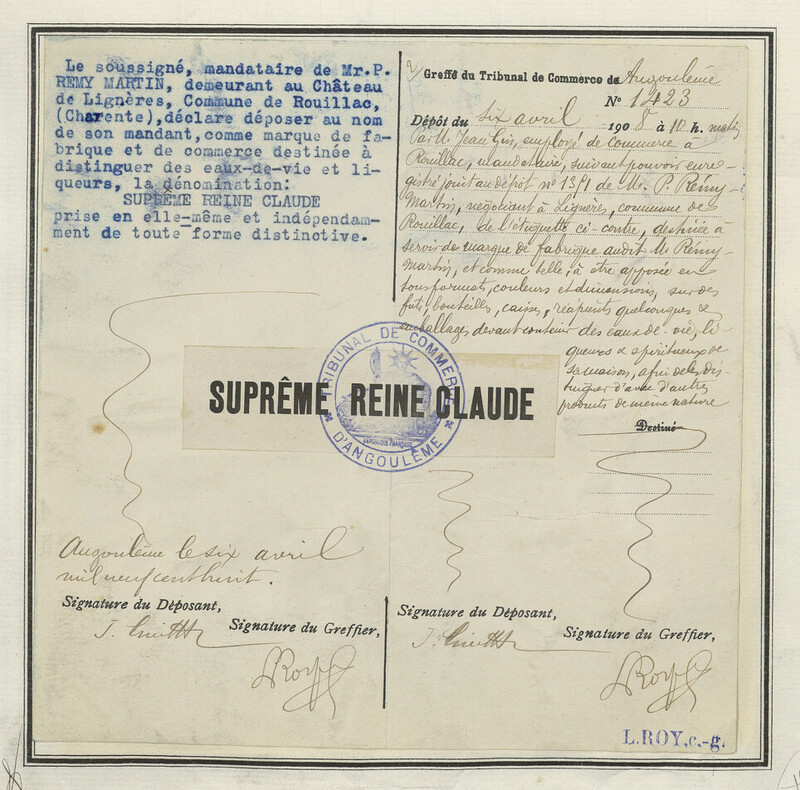 Le soussigné, mandataire de Mr.P.
REMY MARTIN, demeurant au Château
de Lignères, Commune de Rouillac,
(Charente),déclare déposer au nom
de son mandant,comme marque de fa-
brique et de commerce destinée à
distinguer des eaux-de-vie et li-
queurs, la dénomination:
SUPRÊME REINE CLAUDE
prise en elle-même et indépendam-
ment de toute forme distinctive.
Greffe du Tribunal de Commerce de Angoulême
N° 1423
Dépôt du six avril 1908 à 10 h. matin
Par M. Jean Gris, employé de commerce à
Rouillac, mandataire, suivant pouvoir enre-
gistré joint au dépôt n° 1351 de M. P. Rémy-
Martin, négociant à Lignères, commune de
Rouillac, de l'étiquette ci-contre, destinée à
servir de marque de fabrique audit M. Rémy-
Martin, et comme telle, à être apposée en
tous formats, couleurs et dimensions, sur des
futs, bouteilles, caisses, récipients quelconques &
emballages devant contenir des eaux-de-vie, li-
queurs & spiritueux de
sa maison, afin de les dis-
tinguer d'avec d'autres
produits de même nature
Destiné
SUPRÊME REINE CLAUDE
TRIBUNAL DE COMMERCE
D'ANGOULÊME
REPUBLIQUE FRANÇAISE
Angoulême le six avril
mil neuf cent huit.
Signature du Déposant,
Signature du Greffier,
LRoy
Signature du Déposant,
Signature du Greffier,
LRoy
L.ROY,c.-g.